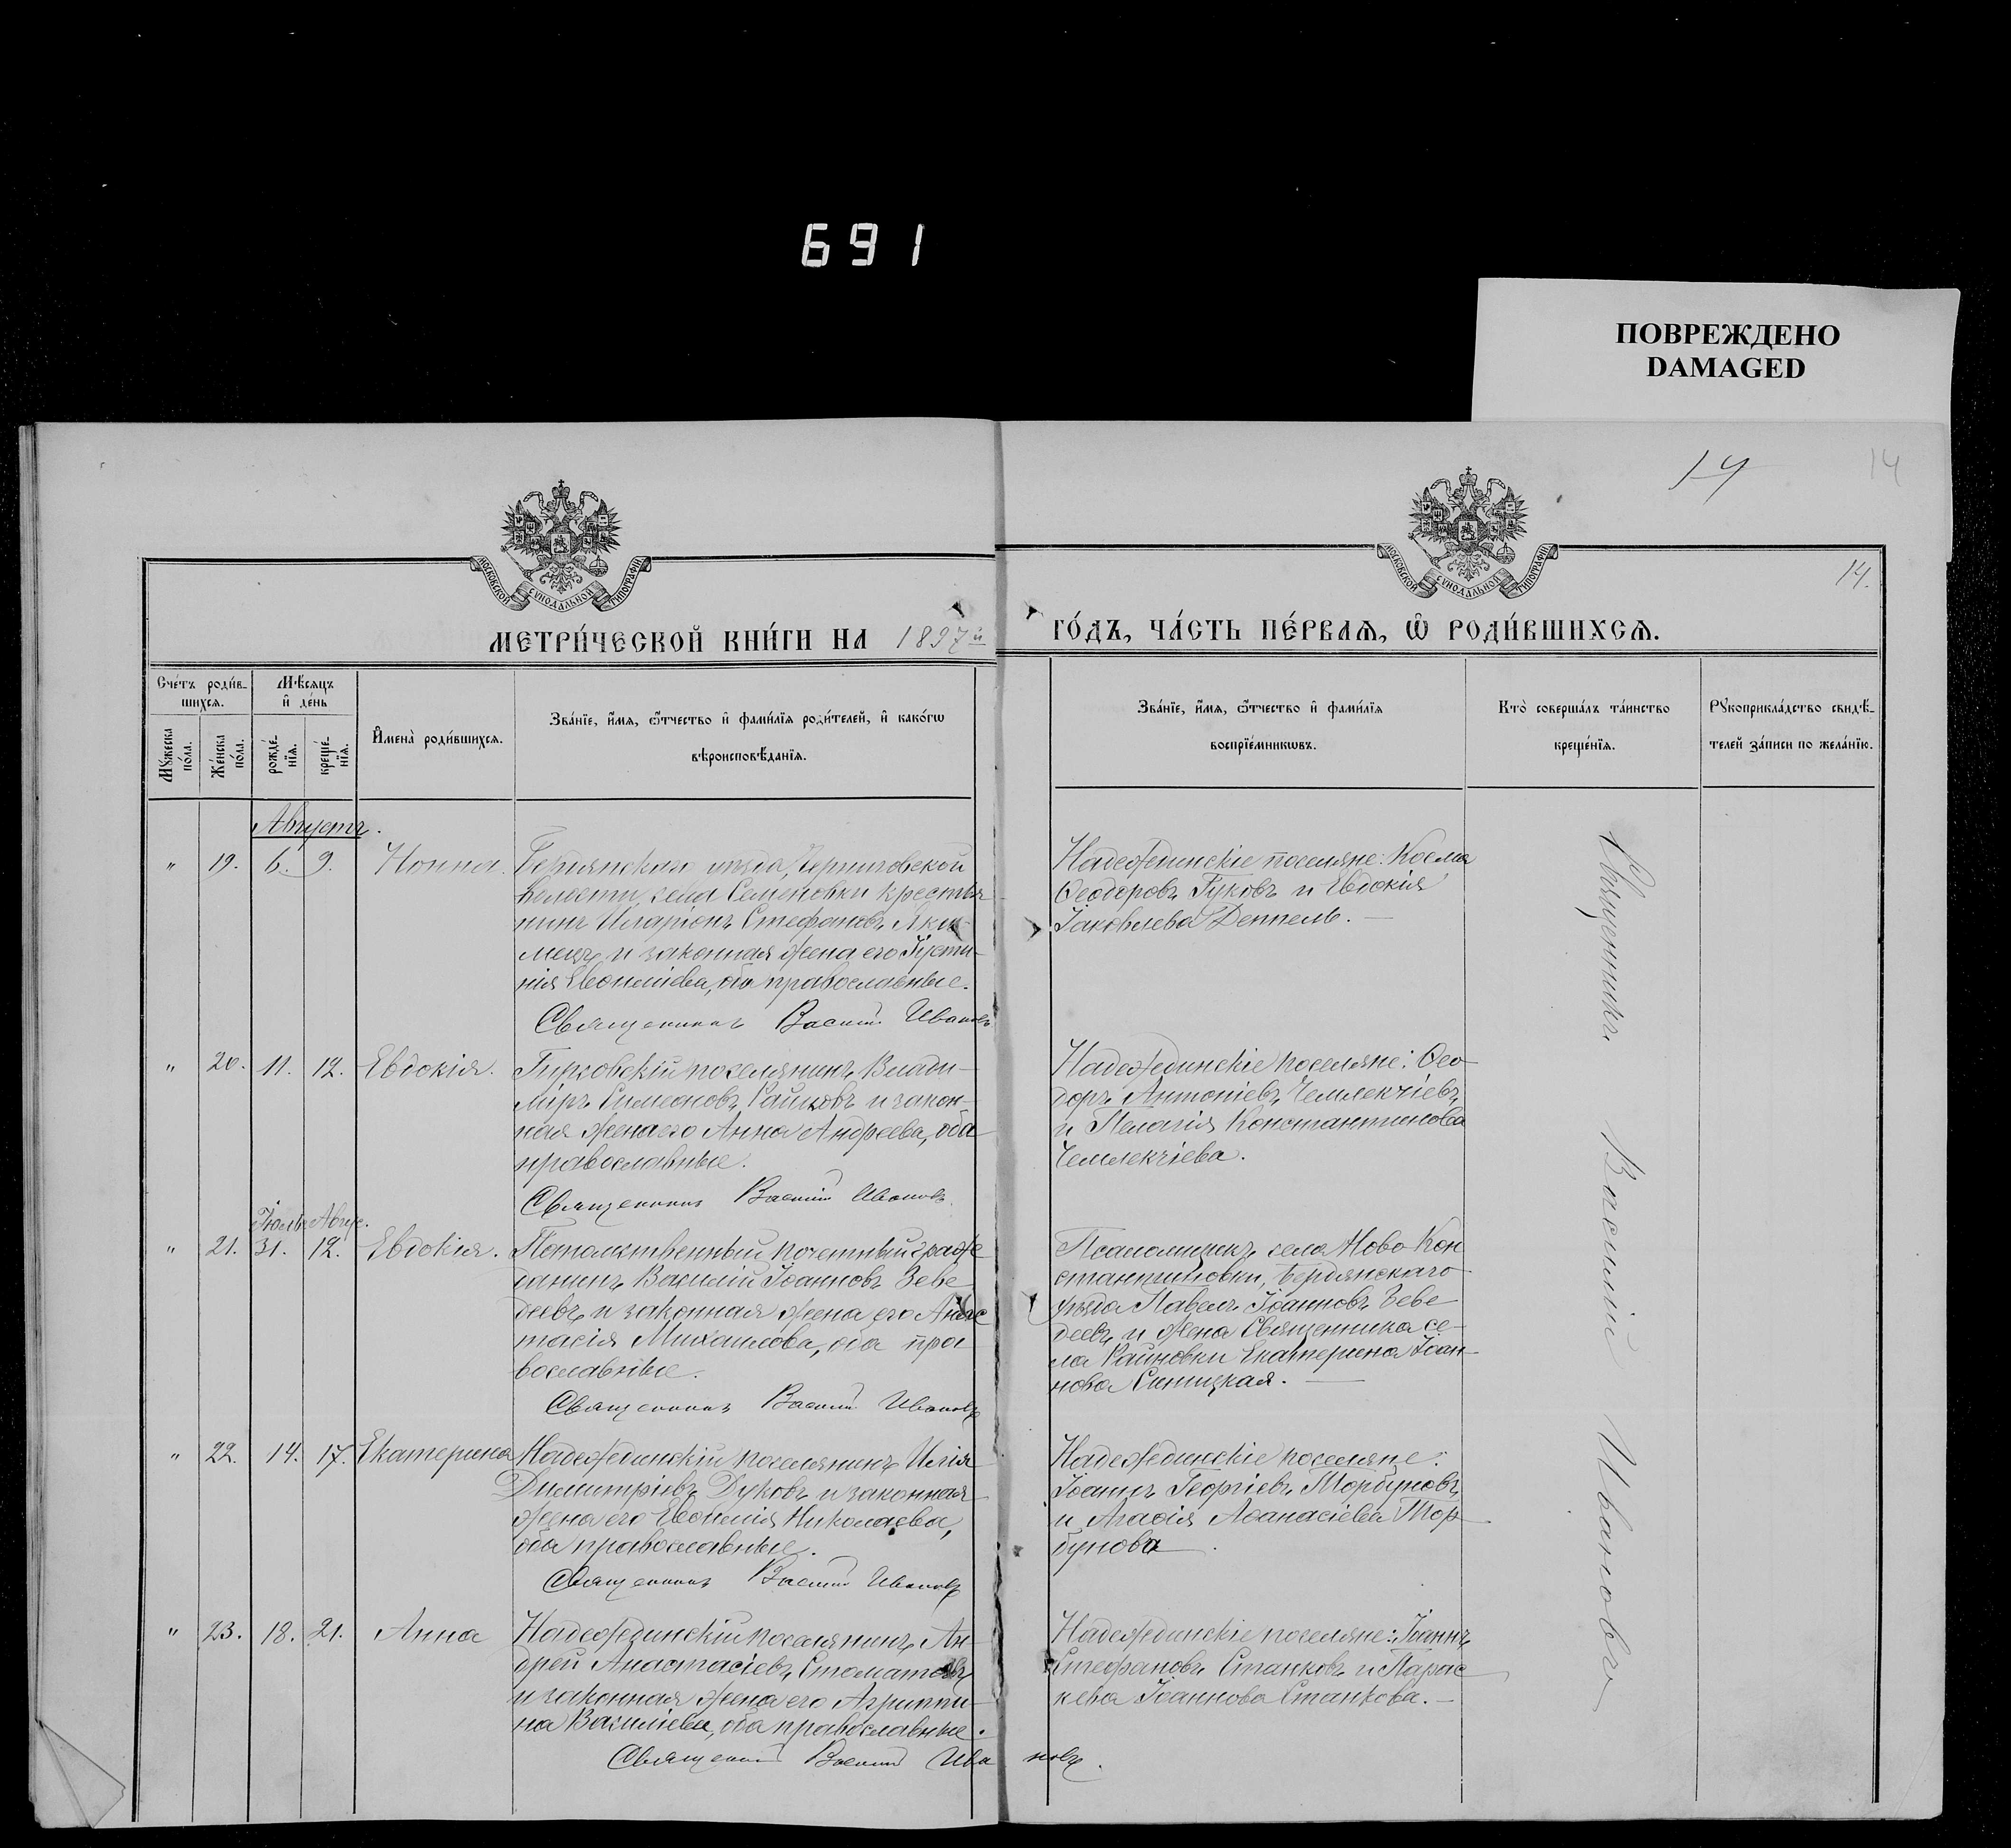 691
ПОВРЕЖДЕНО
DAMAGED
14
14
14.
МОСКОВСКОЙ СУНОДАЛЬНОЙ ТИПОГРАФІИ
МОСКОВСКОЙ СУНОДАЛЬНОЙ ТИПОГРАФІИ
МЕТРИ́ЧЕСКОЙ КНИ́ГИ НА 1897й ГО́ДЪ, ЧА́СТЬ ПЕ́РВАѦ, Ѡ РОДИ́ВШИХСѦ.
Сче́тъ роди́в-
шихсѧ.
Мѹжеска
по́ла.
Же́нска
по́ла.
Мѣ́сѧцъ
и҆ де́нь
рожде́-
нїѧ.
креще́-
нїѧ.
И҆мена̀ роди́вшихсѧ.
Зва́нїе, и҆́мѧ, ѻ҆́тчество и҆ фами́лїѧ роди́телей, и҆ како́гѡ
вѣроисповѣ́данїѧ.
Зва́нїе, и҆́мѧ, ѻ҆́тчество и҆ фами́лїѧ
воспрїе́мникѡвъ.
Кто̀ соверша́лъ та́инство
креще́нїѧ.
Рѹкоприкла́дство свидѣ́-
телей за́писи по жела́нїю.
Августъ.
" 19. 6. 9. Нонна.
Бердянскаго уѣзда, Черниговской
волости, села Семеновки крестья
нинъ Иларіонъ Стефановъ Яки-
менъ и законная жена его Іусти-
нія Евѳиміева, оба православные.
Священникъ Василій Ивановъ
Надеждинскіе поселяне: Косма
Ѳеодоровъ Гуковъ и Евдокія
Іаковлева Деппель.
" 20. 11. 12. Евдокія.
поселянинъ Влади-
міръ Симеоновъ Райковъ и закон-
ная жена его Анна Андреева, оба
православные.
Священникъ Василій Ивановъ
Надеждинскіе поселяне: Ѳео-
доръ Антоніевъ Чемлекчіевъ
и Пелагія Константинова
Чемлекчіева.
Іюль Авгус.
" 21. 31. 12. Евдокія.
Потомственный почетный граж
данинъ Василій Іоанновъ Зеве
деевъ и законная жена его Анас
тасія Михаилова, оба пра
вославные.
Священникъ Василій Ивановъ
Псаломщикъ села Ново-Кон
стантиновки, Бердянскаго
уѣзда Павелъ Іоанновъ Зеве
деевъ и жена Священника се-
ла Райновки Екатерина Іоан-
нова Синицкая.
" 22. 14. 17. Екатерина
Надеждинскій поселянинъ Илія
Димитріевъ Дуковъ и законная
жена его Евѳимія Николаева,
оба православные.
Священникъ Василій Ивановъ
Надеждинскіе поселяне:
Іоаннъ Георгіевъ Морбуновъ
и Агаѳія Аѳанасіева Мор-
бунова
" 23. 18. 21. Анна
Надеждинскій поселянинъ Ан-
дрей Анастасіевъ Стоматовъ
и законная жена его Агриппи-
на Василіева, оба православные.
Священникъ Василій Ивановъ.
Надеждинскіе поселяне: Іоаннъ
Стефановъ Станковъ и Парас
кева Іоаннова Станкова.
Священникъ Василій Ивановъ